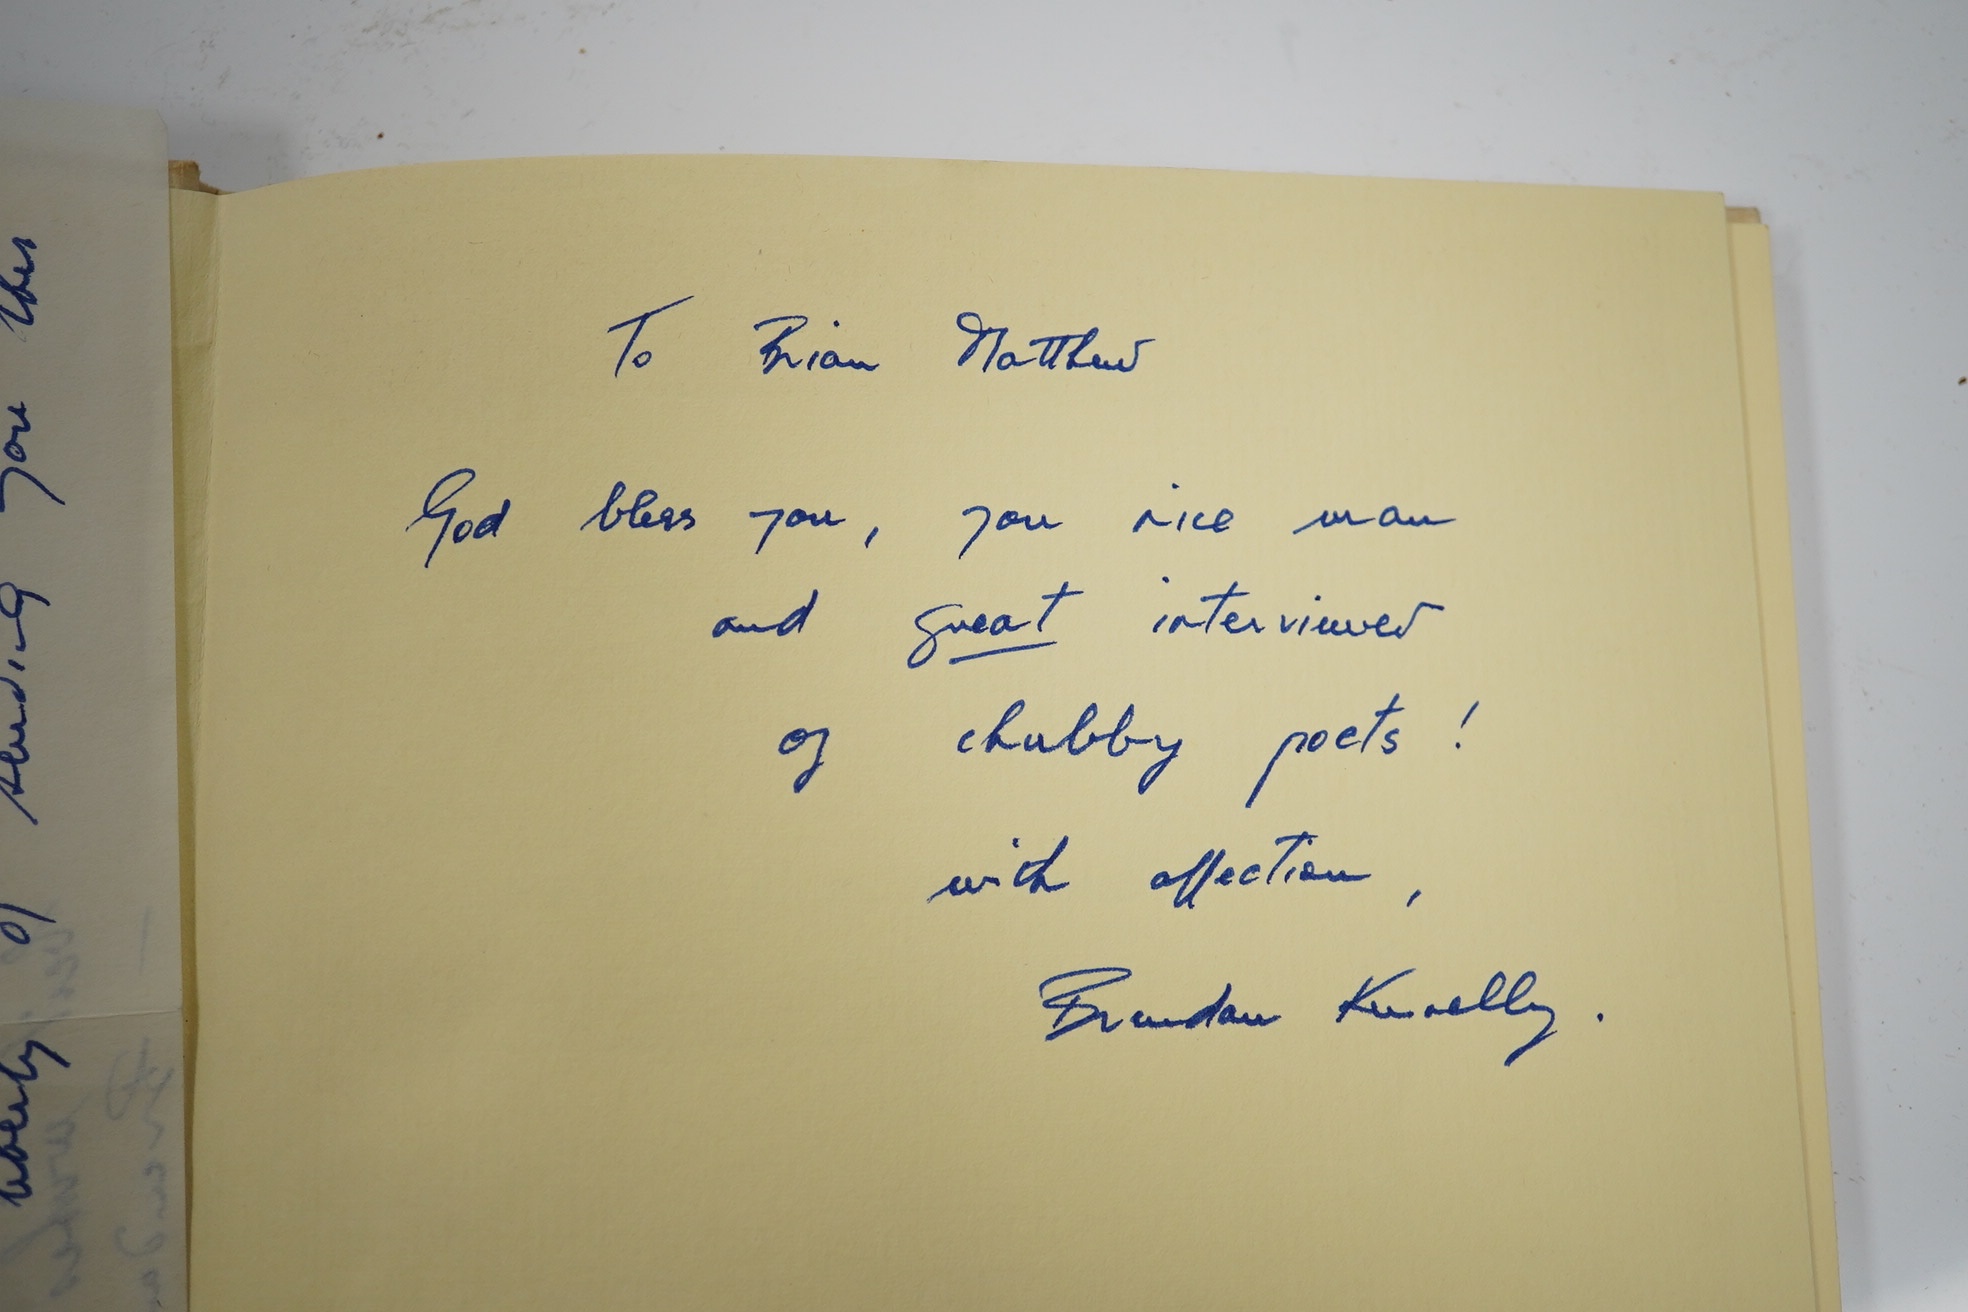 To Brian Matthew
God bless you, you nice man
and great interviewer
of chubby poets!
with affection,
Brendan Kennelly.
of sending you this